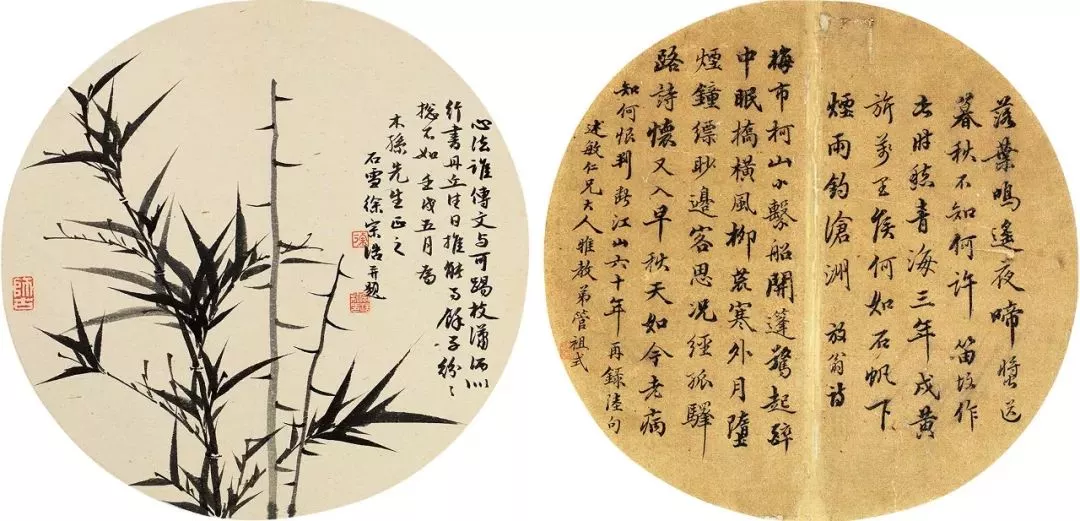 心法誰傳文与可踢枝瀟洒以
行書丹丘生日推能手餘子紛々
捴不如 壬戌五月為
木孫先生正之
石雪徐宗浩并題
師古
落葉鳴遙夜啼螿送
暮秋不知何許笛故作
此时愁青海三年戍黄
旂萬里侯何如石帆下
煙雨釣滄洲 放翁詩
梅市柯山小繫船開蓬驚起醉
中眠橋橫風柳荒寒外月墮
煙鐘縹眇邊客思況經孤驛
路詩懷又入早秋天如今老病
知何恨判斷江山六十年再錄陸句
建敏仁兄大人雅教弟管祖式